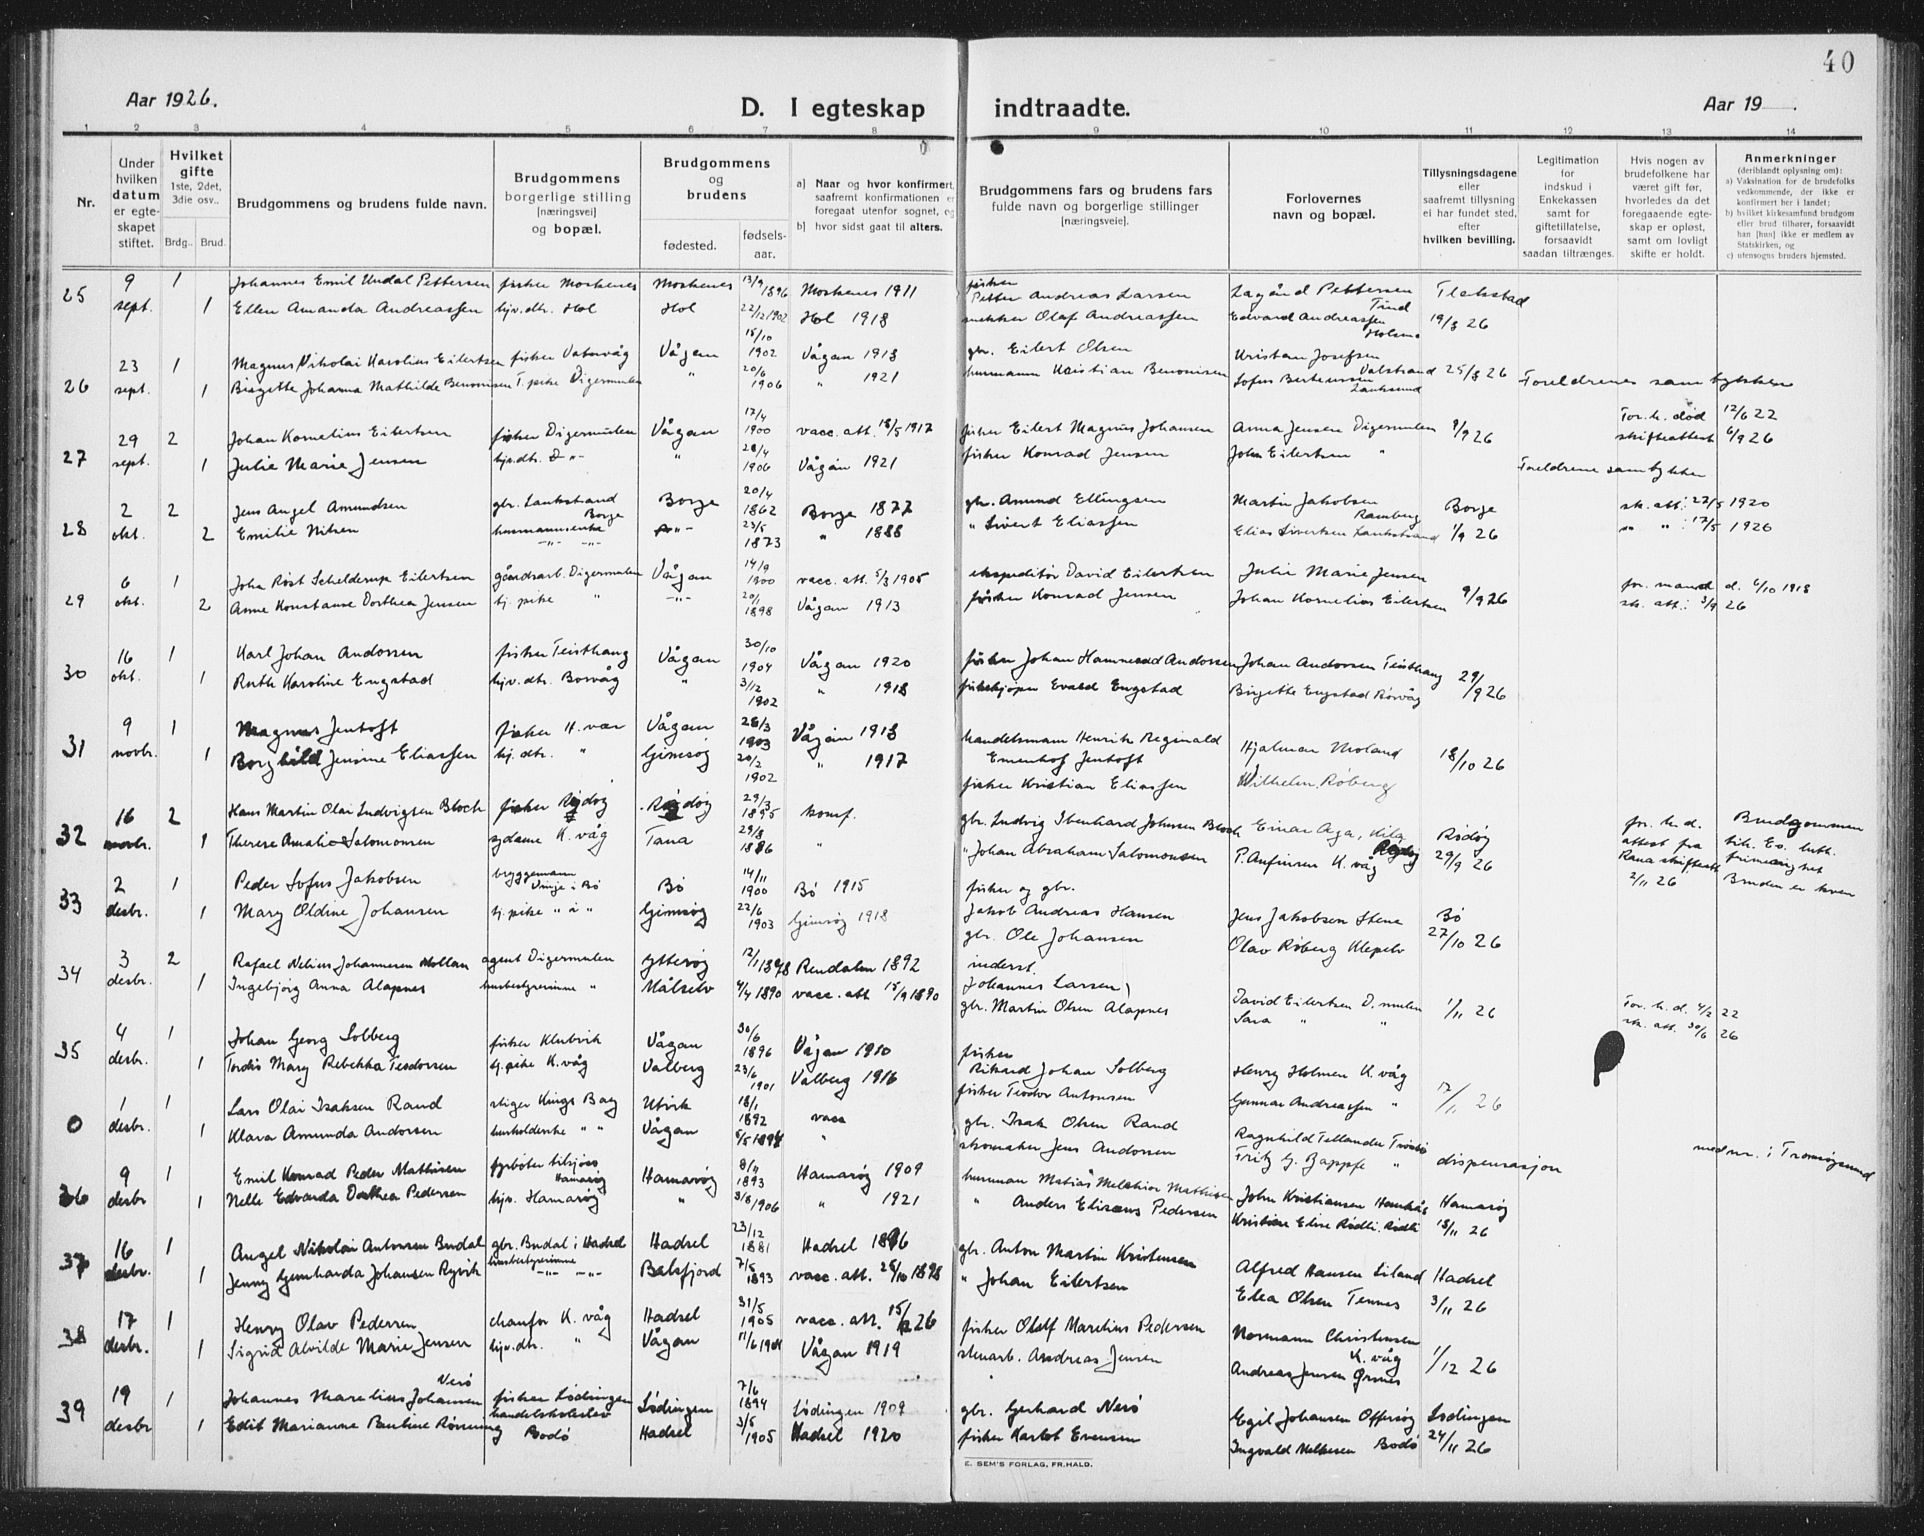 40
Aar 1926.
D. I egteskap indtraadte.
Aar 19 .
1 2 3 4 5 6 7 8 9 10 11 12 13 14
Nr.
Under hvilken datum er egteskapet stiftet.
Hvilket gifte 1ste, 2det, 3die osv..
Brdg.. Brud.
Brudgommens og brudens fulde navn.
Brudgommens borgerlige stilling [næringsvei] og bopæl.
Brudgommens og brudens
fødested. fødselsaar.
a] Naar og hvor konfirmert, saafremt konfirmationen er foregaat utenfor sognet, og
b] hvor sidst gaat til alters.
Brudgommens fars og brudens fars fulde navn og borgerlige stillinger [næringsveie].
Forlovernes navn og bopæl.
Tillysningsdagene eller saafremt tillysning ei har fundet sted, efter hvilken bevilling.
Legitimation for indskud i Enkekassen samt for giftetillatelse, forsaavidt saadan tiltrænges.
Hvis nogen av brudefolkene har været gift før, hvorledes da det foregaaende egteskap er opløst, samt om lovligt skifte er holdt.
Anmerkninger (deriblandt oplysning om): a) Vaksination for de brudefolks vedkommende, der ikke er konfirmert her i landet; b) hvilket kirkesamfund brudgom eller brud tilhører, forsaavidt han [hun] ikke er medlem av Statskirken, og c) utensogns bruders hjemsted.
25 9 sept. 1 Johannes Emil Undal Pettersen fisker Moskenes Moskenes 13/9 1896 Moskenes 1911 fisker Petter Andreas Larsen Pettersen Tind
1 Ellen Amanda Andreassen hjv. dtr. Hol Hol 22/12 1902 Hol 1918 snekker Olaf Andreassen Edvard Andreassen 19/8 26
26 23 sept. 1 Magnus Nikolai Karolius Eilertsen fisker Vågan 15/10 1902 Vågan 1918 gbr. Eilert Olsen Kristan Josefsen Valstrand 25/8 26
1 Birgitte Johanna Mathilde Benonisen T. pike Digermulen " 20/6 1906 " 1921 husmann Kristian Benonisen Sofus Foreldrenes samtykke
27 29 sept. 2 Johan Kornelius Eilertsen fisker Digermulen Vågan 17/4 1900 vacc. att. 18/5 1917 fisker Eilert Magnus Johansen Anna Jensen Digermulen 9/9 26 For. h. død 12/6 22
1 Julie Marie Jensen hjv. dtr. " 28/4 1906 Vågan 1921 fisker Konrad Jensen John Eilertsen " Foreldrene samtykker skifteattest 6/9 26
28 2 okt. 2 Jens Angel Amundsen gbr. Laukstrand Borge Borge 20/4 1862 Borge 1877 gbr. Amund Ellingsen Martin Jakobsen Ramberg Borge sk. att. 27/5 1920
2 Emilie Nilsen husmannsenke -"- -"- 23/5 1873 " 1888 " Sivert Eliassen Elias Sivertsen Laukstrand 1/9 26 " " 17/5 1920
29 6 okt. 1 John Røst Schelderup Eilertsen gårdsarb. Digermulen Vågan 14/9 1900 vacc. att. 5/3 1905 ekspeditør David Eilertsen Julie Marie Jensen 9/9 26 for. mand d. 6/10 1918
2 Anne Konstanse Dorthea Jensen tj. pike " -"- 20/1 1898 Vågan 1913 fisker Konrad Jensen Johan Kornelius Eilertsen sk. att. 3/9 26
30 16 okt. 1 Karl Johan Andorsen fisker Teisthaug Vågan 30/10 1904 Vågan 1920 fisker Johan Hammerud Andorsen Johan Andorsen Teisthaug 29/9 26
1 Ruth Karoline Engstad hjv. dtr. Rørvåg " 3/12 1902 " 1918 fiskekjøper Evald Engstad Birgitte Engstad Rørvåg
31 9 novbr. 1 Magnus Jentoft fisker H. vær Vågan 28/3 1903 Vågan 1918 handelsmann Henrik Reginald Emenhof Jentoft Hjalmar Moland 18/10 26
1 Borghild Jensine Eliassen hj. dtr. " Gimsøy 20/2 1902 " 1917 fisker Kristian Eliassen Wilhelm Røberg
32 16 novbr. 2 Hans Martin Olai Ludvigsen Bloch fisker Rødøy Rødøy 29/3 1895 konf. gbr. Ludvig Ibenhard Johnsen Bloch Einar Aga, Rødøy for. h. d. Brudgommen
1 Therese Amalie Salomonsen sydame K. våg Tana 29/8 1886 " " Johan Abraham Salomonsen P. Anfinsen K. våg 29/9 26 attest fra Rana skifterett 2/11 26 tilh. Ev. luth. frimenighet Bruden er kven
33 2 desbr. 1 Peder Sofus Jakobsen bryggemann Vinje i Bø Bø 14/11 1900 Bø 1915 fisker og gbr. Jakob Andreas Hansen Jens Jakobsen Stene Bø
1 Mary Oldine Johansen tj. pike " i " Gimsøy 22/6 1903 Gimsøy 1918 gbr. Ole Johansen Olav Røberg Klepelv 27/10 26
34 3 desbr. 2 Rafael Nelius Johannesen Mollan agent Digermulen Ytterøy 12/1 1878 Rendalen 1892 inderst. Johannes Larsen David Eilertsen D. mulen 1/11 26 For. h. d. 4/2 22
1 Ingebjørg Anna Alapnes husbestyrerinne " Målselv 4/4 1890 vacc. att 15/9 1890 gbr. Martin Olsen Alapnes Sara " " sk. att. 30/6 26
35 4 desbr. 1 Johan Georg Solberg fisker Klubvik Vågan 30/6 1896 Vågan 1910 fisker Rikard Johan Solberg Henry Holmen K. våg 17/11 26
1 Tordis Mary Rebekka Teodorsen tj. pike K. våg Valberg 23/6 1901 Valberg 1916 fisker Teodor Antonsen Gunnar Andreassen "
0 1 desbr. 1 Lars Olai Isaksen Rand stiger Kings Bay Utvik 18/1 1892 vacc gbr. Isak Olsen Rand Ragnhild Tellander Tromsø dispensasjon med nr. i Tromsøysund
1 Klara Amunda Andorsen husholderske " " Vågan 5/5 1894 " skomaker Jens Andorsen Fritz G. Zappfe "
36 9 desbr 1 Emil Konrad Peder Mathisen fyrbøter tilsjøss Hamarøy Hamarøy 8/11 1893 Hamarøy 1909 husmann Matias Melchior Mathisen John Kristiansen Hamarøy
1 Nelle Edvarda Dorthea Pedersen hjv. Hamarøy " 3/8 1906 " 1921 " Anders Elisæus Pedersen Kristine Eline Rødli, Rødli 18/11 26
37 16 desbr. 1 Angel Nikolai Antonsen Budal gbr. Budal i Hadsel Hadsel 23/12 1881 Hadsel 1896 gbr. Anton Martin Kristensen Alfred Hansen Liland Hadsel
1 Jenny Gunharda Johansen Ryvik husbestyrerinne -"- -"- Balsfjord 7/5 1893 vacc. att. 28/10 1898 " Johan Eilertsen Elea Olsen Tennes 3/11 26
38 17 desbr. 1 Henry Olav Pedersen chaufør K. våg Hadsel 31/5 1905 vacc. att. 15/12 26 fisker Olaf Marelius Pedersen Normann Christensen K. våg 1/12 26
1 Sigrid Alvilde Marie Jensen hjv. dtr. " Vågan 11/6 1904 Vågan 1919 stenarb. Andreas Jensen Andreas Jensen Ørsnes
39 19 desbr 1 Johannes Marelius Johansen Nesø fisker Lødingen Lødingen 7/6 1894 Lødingen 1909 gbr. Gerhard Nesø Egil Johansen Offersøy Lødingen
1 Edit Marianne Pauline Rørmning handelskoleelev Bodø Hadsel 3/5 1905 Hadsel 1920 fisker Karlot Evensen Ingvald Melkesen Bodø 24/11 26
E. SEM'S FORLAG, FR.HALD.